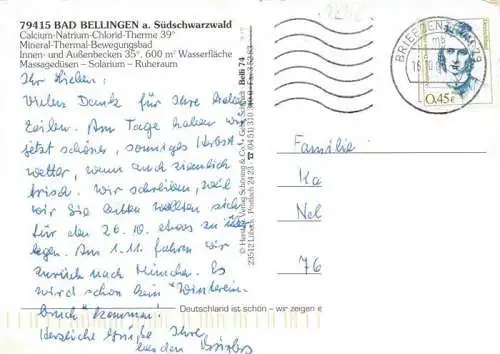 79415 BAD BELLINGEN a. Südschwarzwald
Calcium-Natrium-Chlorid-Therme 39°
Mineral-Thermal-Bewegungsbad
Innen- und Außenbecken 35°, 600 m² Wasserfläche
Massagedüsen – Solarium – Ruheraum
Ihr Lieben!
Vielen Dank für Ihre
Zeilen. Am Tage haben wir
jetzt schönes, sonniges Herbst-
wetter, wenn auch ziemlich
frisch. Wir schreiben, weil
wir Sie bitten wollten sich
für den 26.10. etwas zu über
legen. Am 1.11. fahren wir
zurück nach München. Es
wird schon kein "Winterein-
bruch" kommen!
Herzliche Grüße Ihre
beiden
© Hans Verlag Schöning & Co. + Gebr. Schmidt Belli 74
23512 Lübeck Postfach 24 23
Deutschland ist schön – wir zeigen e
BRIEFZENTRUM 79
mb
0,45€
Familie
Ka
Nel
76